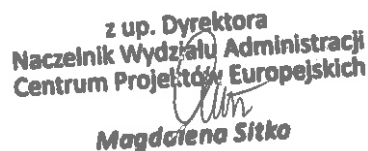 z up. Dyrektora
Naczelnik Wydziału Administracji
Centrum Projektów Europejskich
Magdalena Sitko